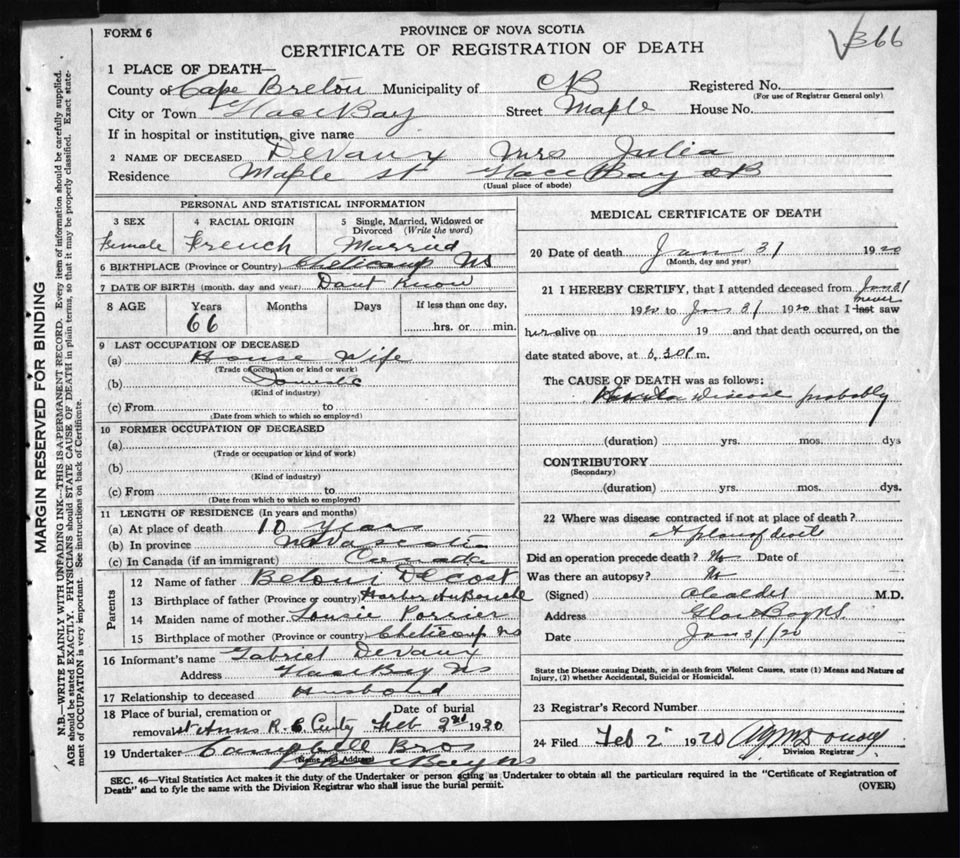 366
FORM 6
PROVINCE OF NOVA SCOTIA
CERTIFICATE OF REGISTRATION OF DEATH
1 PLACE OF DEATH—
County of Cape Breton Municipality of CB Registered No.
(For use of Registrar General only)
City or Town Glace Bay Street Maple House No.
If in hospital or institution, give name
2 NAME OF DECEASED Devaux Mrs Julia
Residence Maple St Glace Bay CB
(Usual place of abode)
PERSONAL AND STATISTICAL INFORMATION
3 SEX 4 RACIAL ORIGIN 5 Single, Married, Widowed or
Divorced (Write the word)
Female French Married
6 BIRTHPLACE (Province or Country) Cheticamp NS
7 DATE OF BIRTH (month, day and year) Dont Know
8 AGE Years Months Days If less than one day,
66 hrs. or min.
9 LAST OCCUPATION OF DECEASED
(a) House Wife
(Trade of occupation or kind or work)
(b) Domestic
(Kind of industry)
(c) From to
(Date from which to which so employed)
10 FORMER OCCUPATION OF DECEASED
(a)
(Trade or occupation or kind of work)
(b)
(Kind of industry)
(c) From to
(Date from which to which so employed)
11 LENGTH OF RESIDENCE (In years and months)
(a) At place of death 10 years
(b) In province Nova Scotia
(c) In Canada (if an immigrant) Canada
Parents
12 Name of father Beloni Decost
13 Birthplace of father (Province or country) Harbor AuBouche
14 Maiden name of mother Poirrier
15 Birthplace of mother (Province or country) Cheticamp NS
16 Informant's name Gabriel Devaux
Address Glace Bay NS
17 Relationship to deceased Husband
18 Place of burial, cremation or Date of burial
removal St Anns R.C Cmty Feb 2nd 1920
19 Undertaker Campbell Bros
(Name and Address) Glace Bay NS
MEDICAL CERTIFICATE OF DEATH
20 Date of death Jan 31 1920
(Month, day and year)
21 I HEREBY CERTIFY, that I attended deceased from Jan 31
never
1920 to Jan 31 1920 that I last saw
her alive on 19 and that death occurred, on the
date stated above, at 6.30 P m.
The CAUSE OF DEATH was as follows:
Disease probably
(duration) yrs. mos. dys
CONTRIBUTORY
(Secondary)
(duration) yrs. mos. dys.
22 Where was disease contracted if not at place of death?
At place of death
Did an operation precede death? No Date of
Was there an autopsy? No
(Signed) M.D.
Address Glace Bay NS.
Date Jan 31/20
State the Disease causing Death, or in death from Violent Causes, state (1) Means and Nature of
Injury, (2) whether Accidental, Suicidal or Homicidal.
23 Registrar's Record Number
24 Filed Feb 2 1920
Division Registrar
SEC. 46—Vital Statistics Act makes it the duty of the Undertaker or person acting as Undertaker to obtain all the particulars required in the "Certificate of Registration of
Death" and to fyle the same with the Division Registrar who shall issue the burial permit. (OVER)
MARGIN RESERVED FOR BINDING
N.B.—WRITE PLAINLY WITH UNFADING INK—THIS IS A PERMANENT RECORD. Every item of information should be carefully supplied.
AGE should be stated EXACTLY. PHYSICIANS should STATE CAUSE OF DEATH in plain terms, so that it may be properly classified. Exact state-
ment of OCCUPATION is very important. See instructions on back of Certificate.